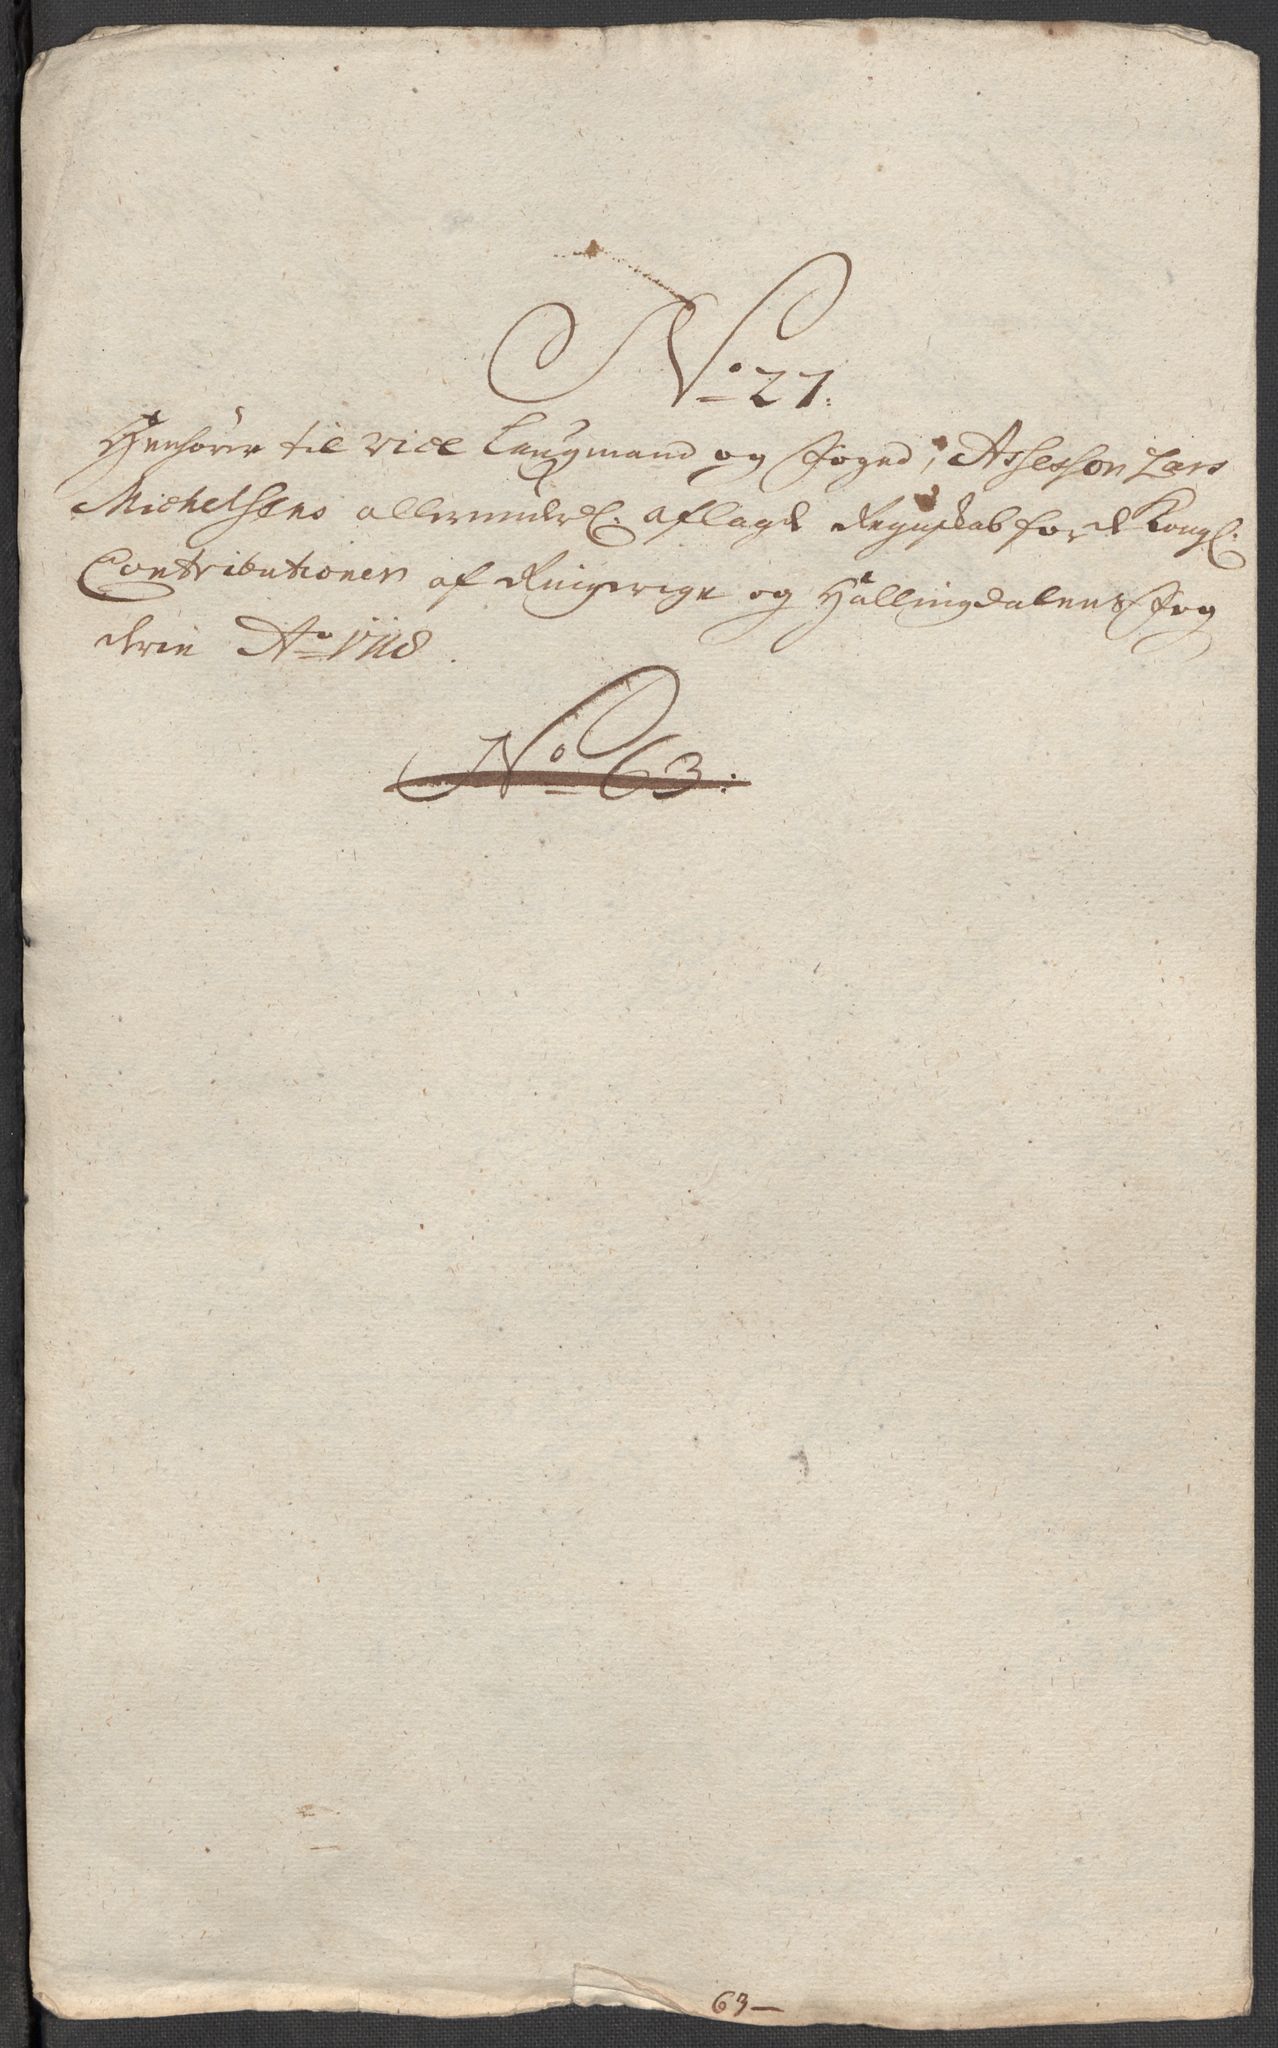 No 27.
Henhører til vice Laugmand og Foged, Assessor Lars
Michelsens allerunderdl. aflagde Regnskab for de Kongl.
Contributioner af Ringerige og Hallingdalens Fog
derie Ao 1718.
No 63:
63—